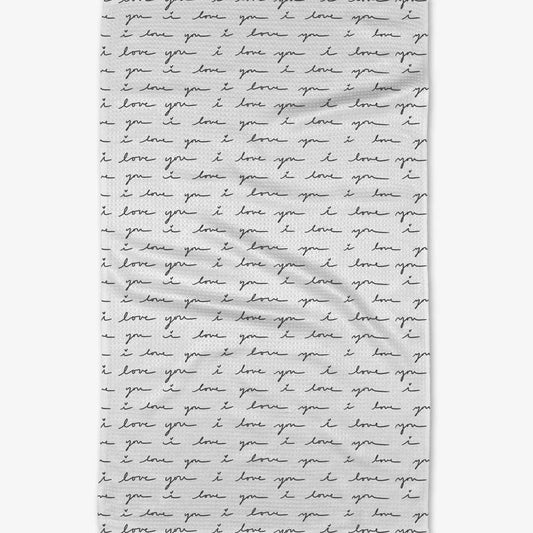 you i love you i love you i
ve you i love you i love you i
i love you i love you i love yo
i love you i love you i love you
ve you i love you i love you i
i love you i love you i love yo
i love you i love you i love you
ve you i love you i love you i
i love you i love you i love yo
i love you i love you i love you
ve you i love you i love you i
i love you i love you i love yo
i love you i love you i love you
ve you i love you i love you i
i love you i love you i love yo
i love you i love you i love you
ve you i love you i love you i
i love you i love you i love yo
i love you i love you i love you
ve you i love you i love you i
i love you i love you i love yo
i love you i love you i love you
ve you i love you i love you i
i love you i love you i love yo
i love you i love you i love you
ve you i love you i love you i
i love you i love you i love yo
i love you i love you i love you